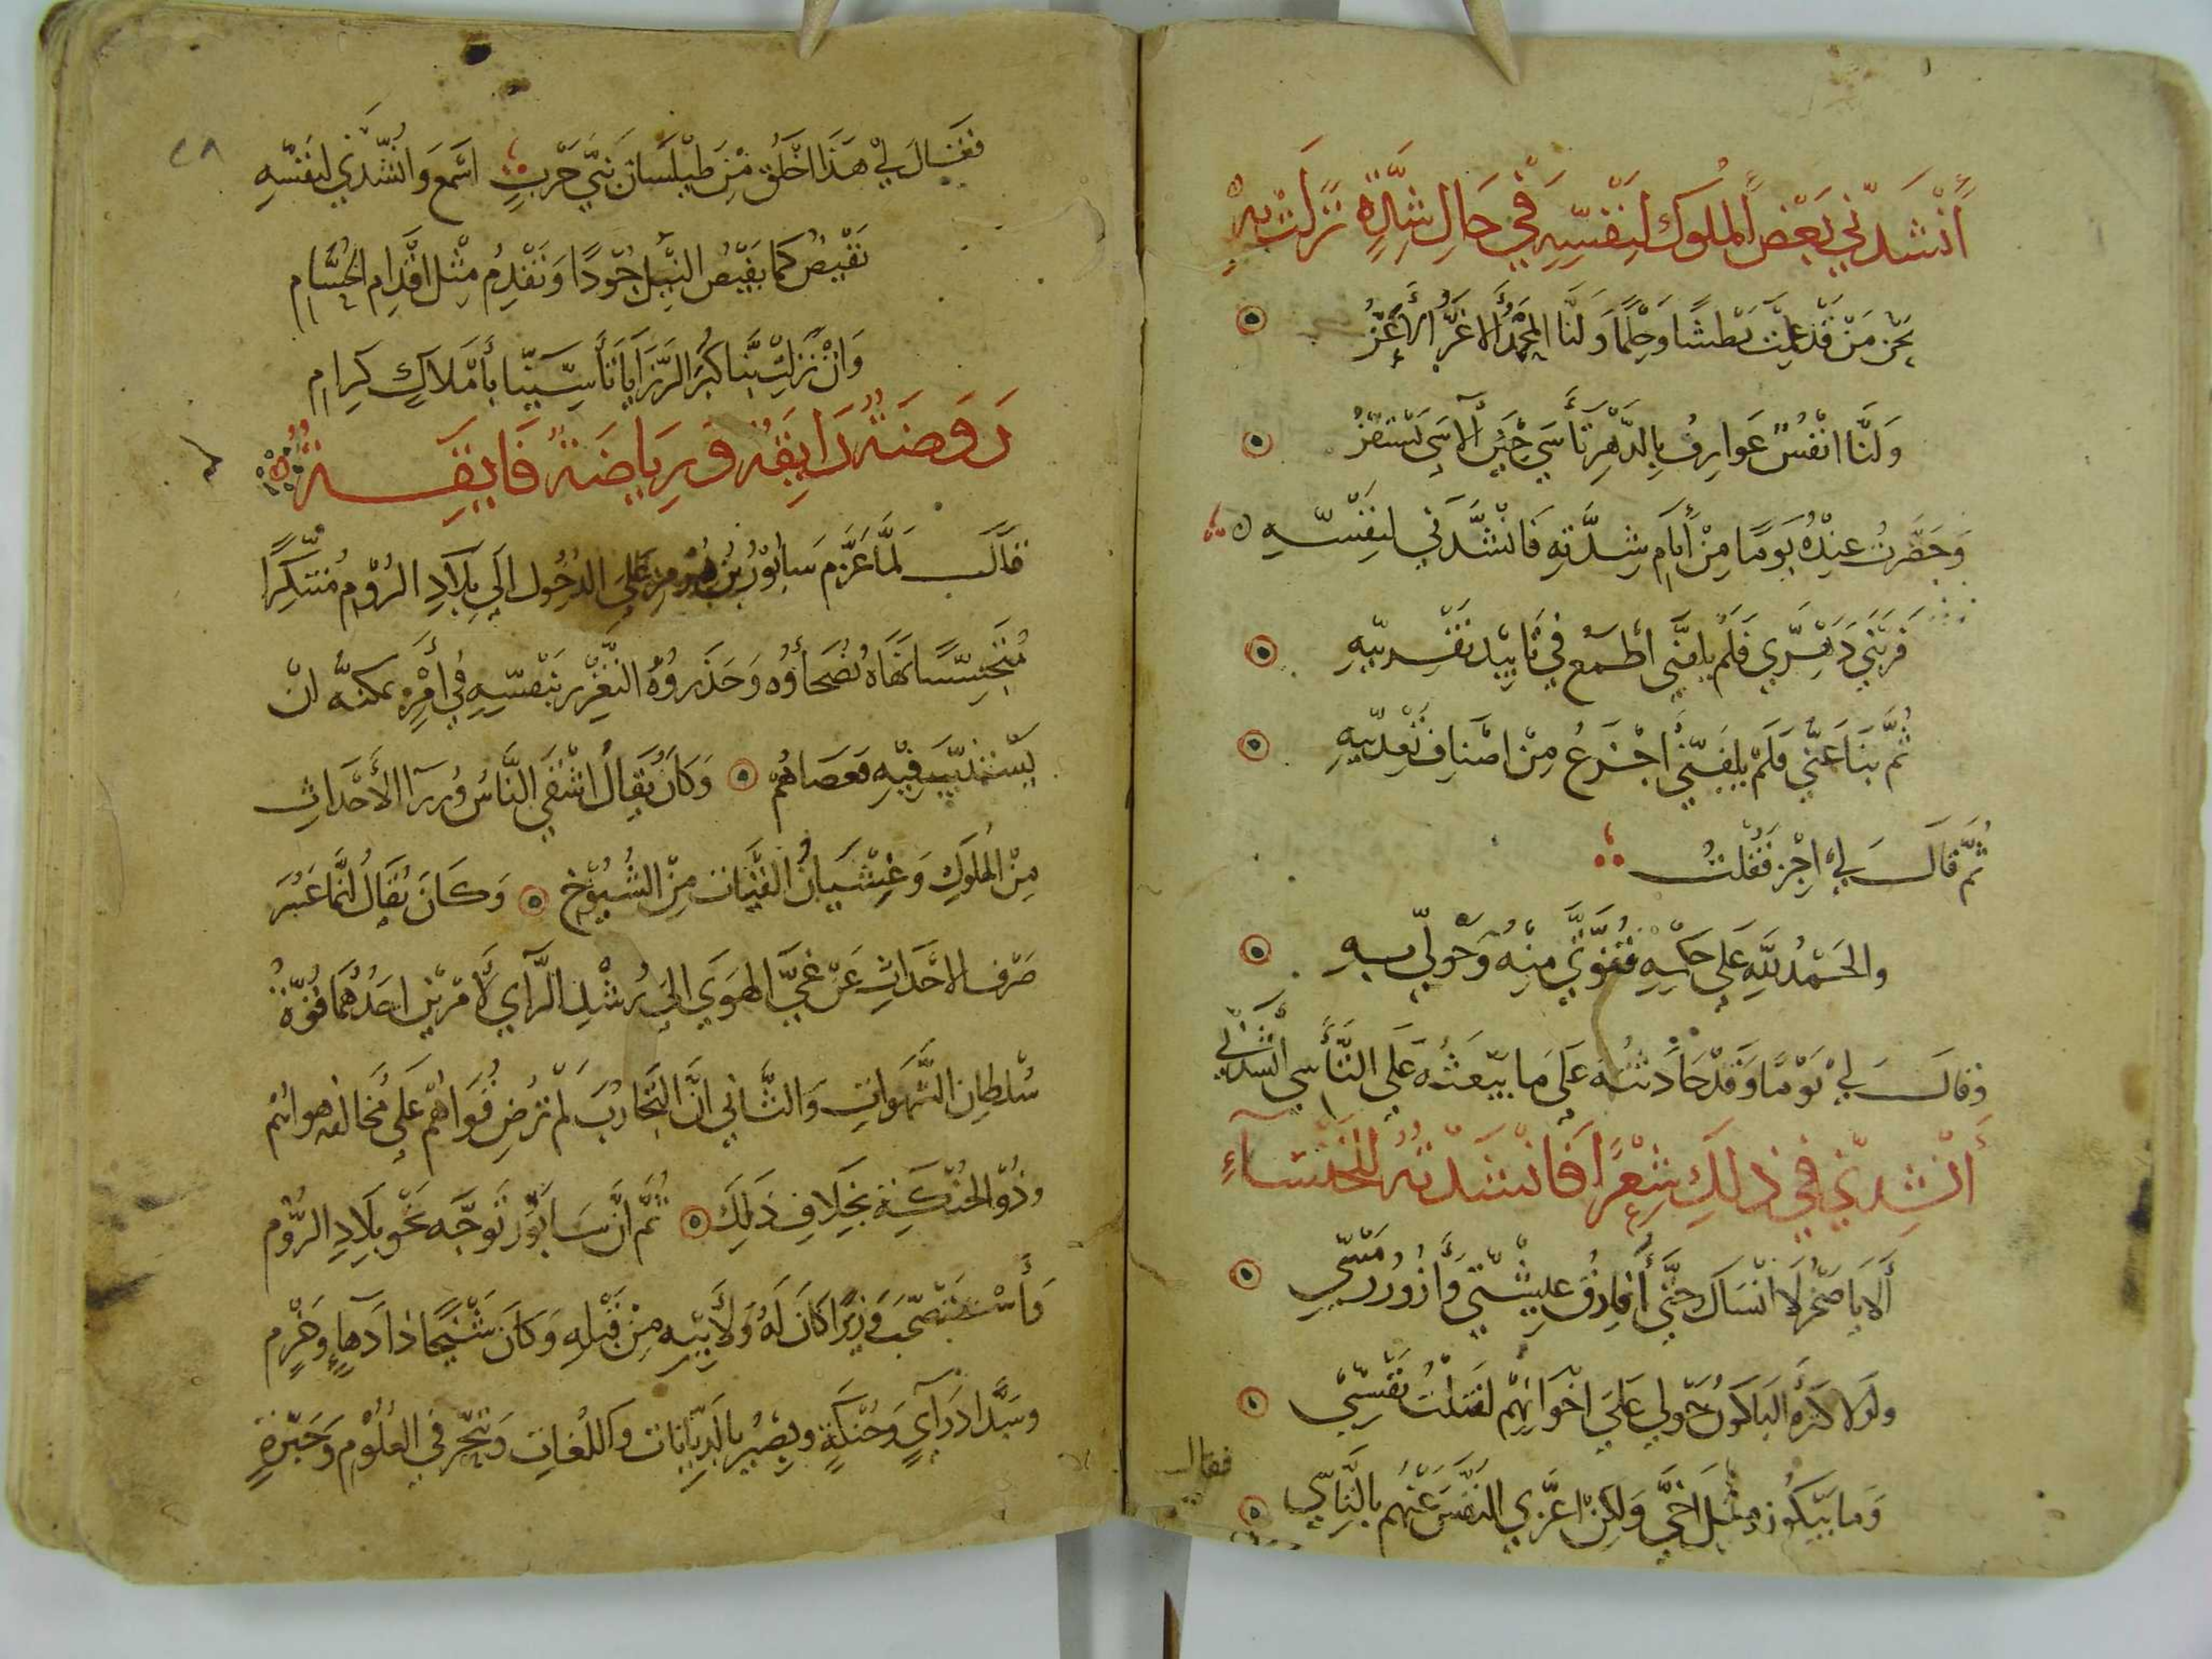 أنشدني بعض الملوك لنفسه في حال شدة نزلت به
نحن من قد علمت بطشا وحلما ولنا المجد الاغر الأعز
ولنا انفس عوارف بالدهر تأسى حين الاسى تستفز
وحضرت عنده يوما من أيام شدته فانشدني لنفسه
قربني دهري فلم يلفني اطمع في تاييد تقريبه
ثم نبا عني فلم يلفني اجزع من اصناف تعديبه
ثم قال لي اجز فقلت
والحمد لله على حكمه قوتي منه وحولي به
وقال لي يوما وقد حادثته على ما يبعثه على التأسي انشدني
أنشدني في ذلك شعرا فانشدته للخنساء
ألا يا صخر لا انساك حتى أفارق عيشتي وأزور رمسي
ولولا كثرة الباكون حولي على اخوانهم لقتلت نفسي
وما يبكون مثل اخي ولكن اعزي النفس عنهم بالتاسي
فقال
٢٨
فقال لي هذا اخلق من طيلسان بني حرب اسمع وانشدني لنفسه
نفيض كما يفيض النيل جودا ونقدم مثل اقدام الحسام
وان نزلت بنا كبر الرزايا تأسينا بأملاك كرام
روضة رايقة ورياضة فايقة
قال لما عزم سابور بن هرمز على الدخول الى بلاد الروم متنكرا
متجسسا نهاه نصحاؤه وحذروه التغرير بنفسه في أمر يمكنه ان
يستنيب فيه فعصاهم وكان يقال اشقى الناس وزرآ الأحداث
من الملوك وعشيان الفتيات من الشيوخ وكان يقال انما عسر
صرف الاحداث عن غي الهوى الى رشد الرآي لأمرين احدهما قوة
سلطان الشهوات والثاني ان التجارب لم ترض قواهم على مخالفه هوائهم
وذو الحنكة بخلاف ذلك ثم ان سابور توجه نحو بلاد الروم
وأستصحب وزيرا كان له ولأبيه من قبله وكان شيخا ذا دهاء وحزم
وسداد رآي وحنكة وبصير بالديانات واللغات وتبحر في العلوم وخبرة